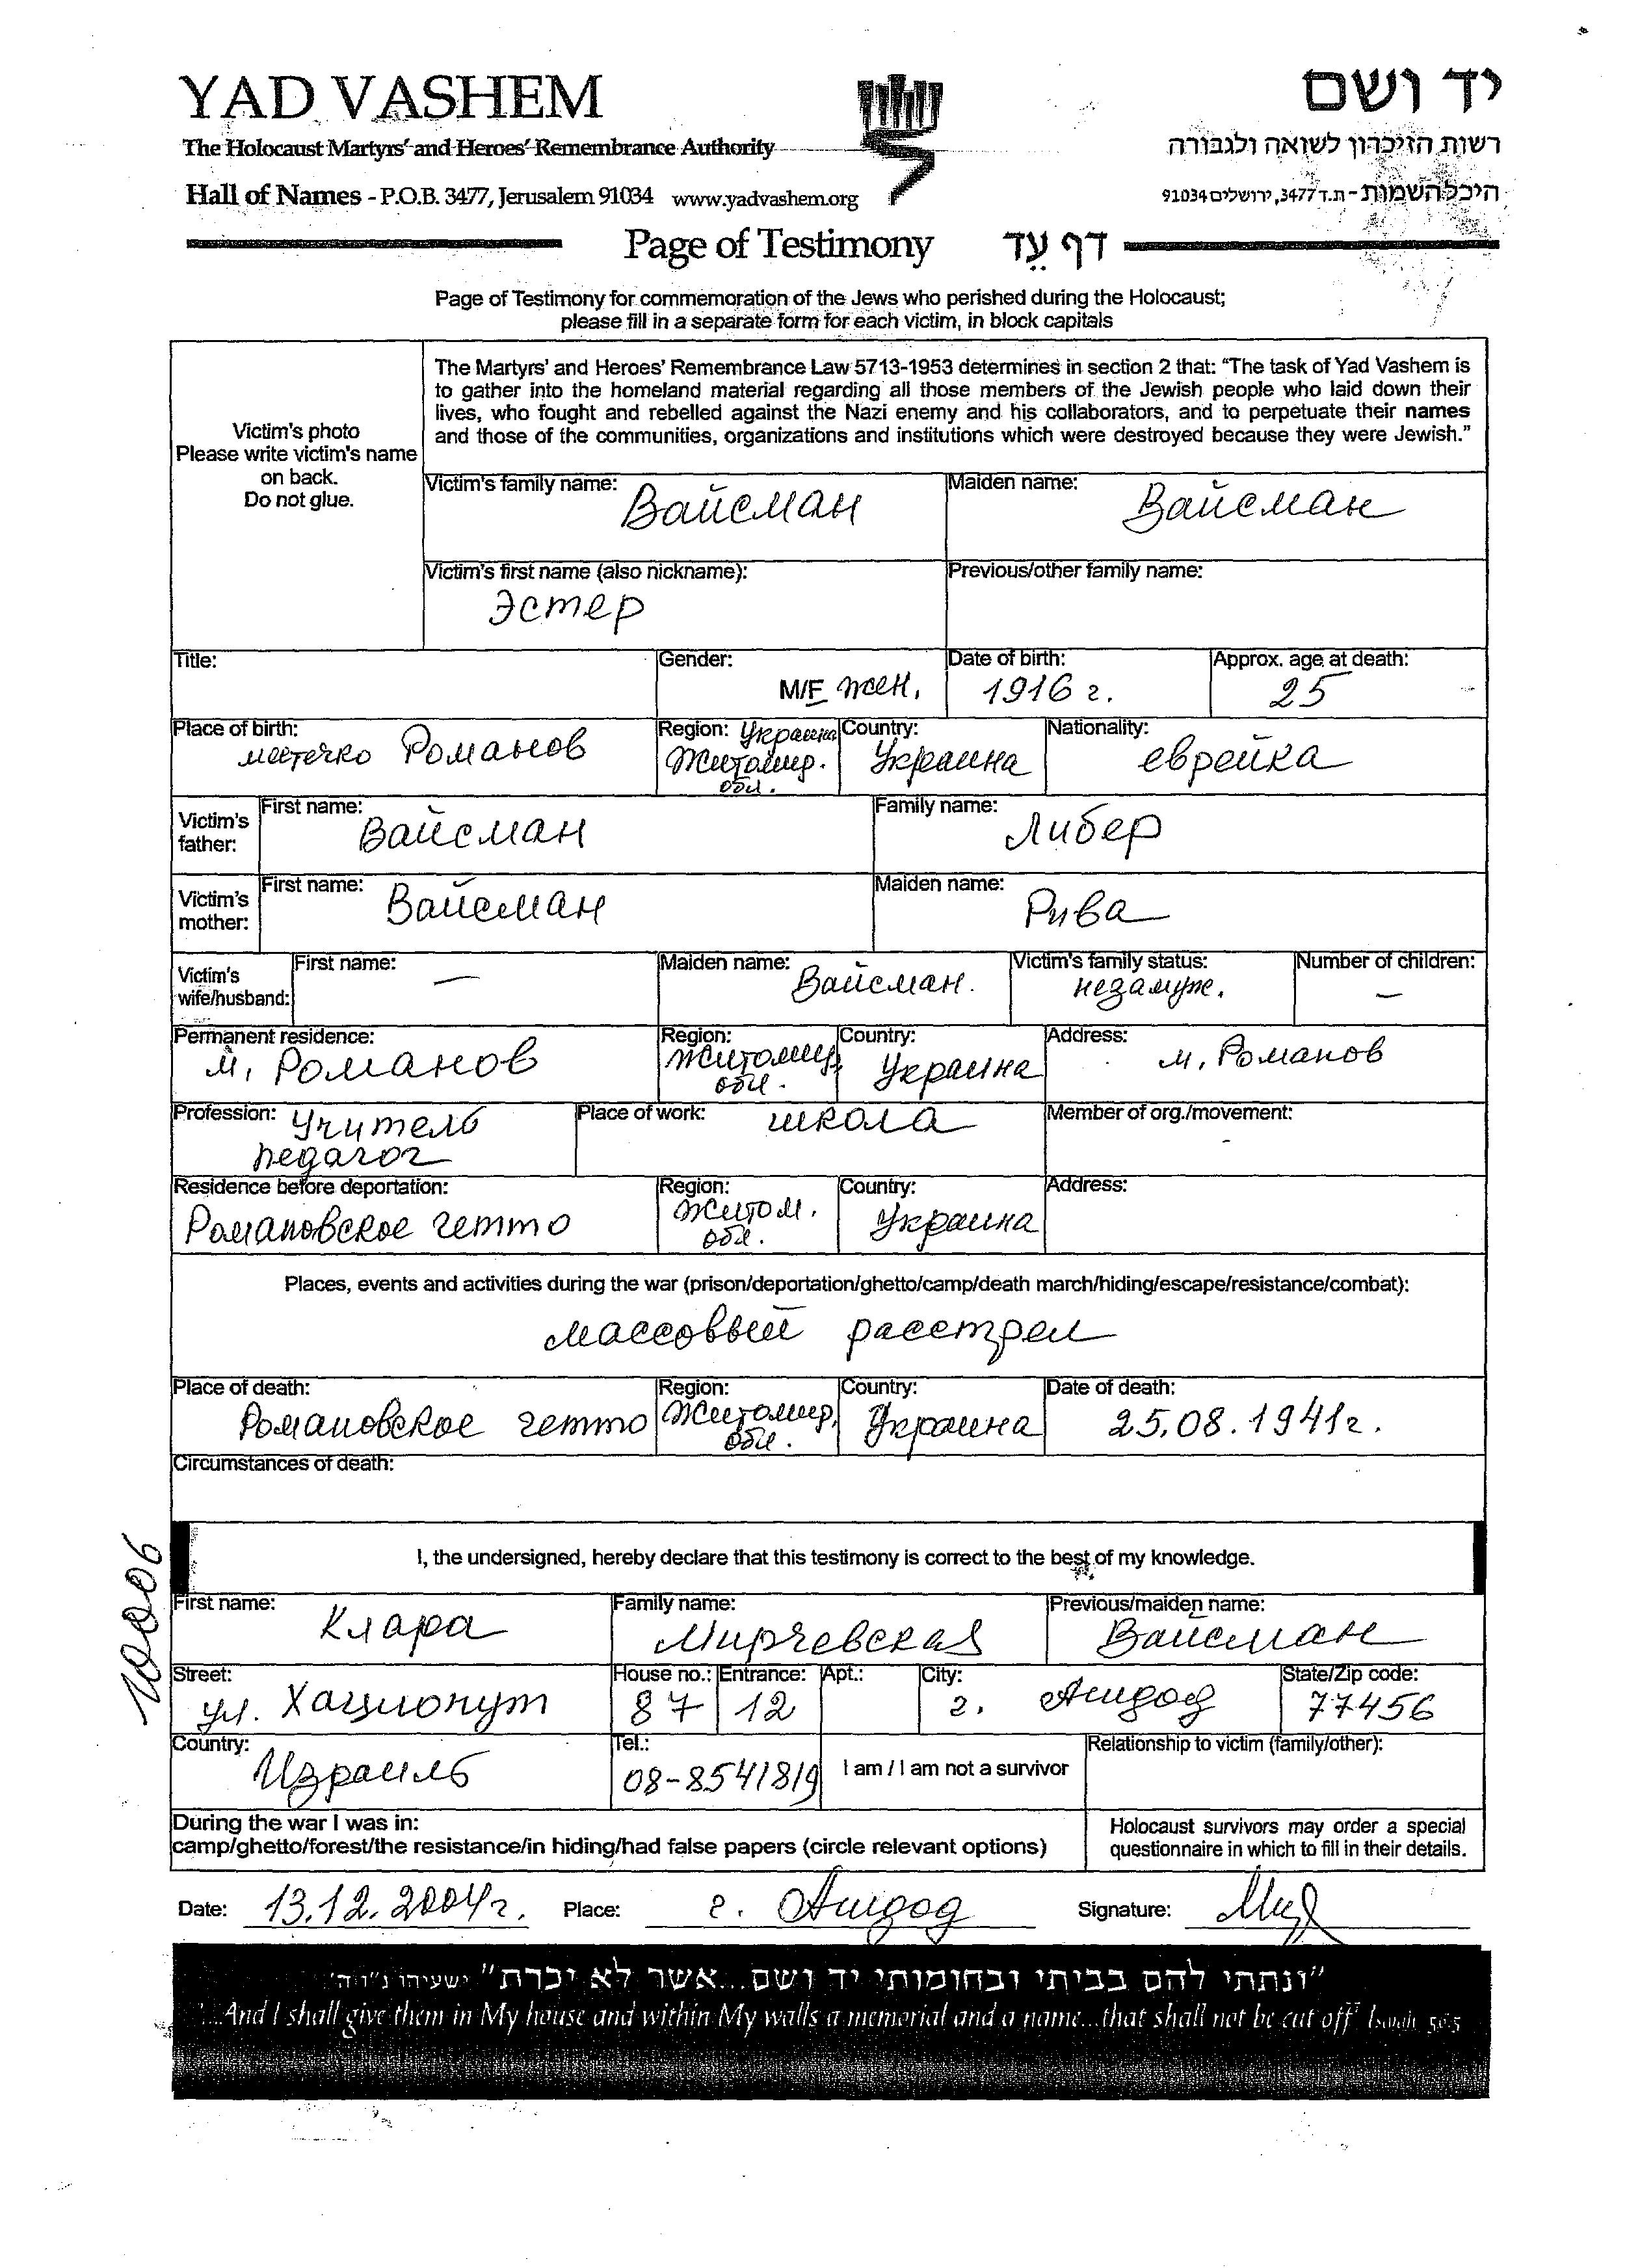 YAD VASHEM
יד ושם
The Holocaust Martyrs' and Heroes' Remembrance Authority
רשות הזיכרון לשואה ולגבורה
Hall of Names - P.O.B. 3477, Jerusalem 91034 www.yadvashem.org
היכל השמות - ת.ד 3477, ירושלים 91034
Page of Testimony דף עֵד
Page of Testimony for commemoration of the Jews who perished during the Holocaust;
please fill in a separate form for each victim, in block capitals
Victim's photo
Please write victim's name
on back.
Do not glue.
The Martyrs' and Heroes' Remembrance Law 5713-1953 determines in section 2 that: "The task of Yad Vashem is
to gather into the homeland material regarding all those members of the Jewish people who laid down their
lives, who fought and rebelled against the Nazi enemy and his collaborators, and to perpetuate their names
and those of the communities, organizations and institutions which were destroyed because they were Jewish."
Victim's family name: Вайсман Maiden name: Вайсман
Victim's first name (also nickname): Previous/other family name:
Эстер
Title: Gender: Date of birth: Approx. age at death:
M/F жен. 1916 г. 25
Place of birth: Region: Украина Country: Nationality:
местечко Романов Житомир. Украина еврейка
обл.
Victim's father: First name: Вайсман Family name: Либер
Victim's mother: First name: Вайсман Maiden name: Рива
Victim's wife/husband: First name: — Maiden name: Вайсман. Victim's family status: незамуж. Number of children: —
Permanent residence: Region: Country: Address:
м. Романов Житомир. Украина м. Романов
обл.
Profession: Учитель Place of work: школа Member of org./movement: -
педагог
Residence before deportation: Region: Country: Address:
Романовское гетто Житом. Украина
обл.
Places, events and activities during the war (prison/deportation/ghetto/camp/death march/hiding/escape/resistance/combat):
массовый расстрел
Place of death: Region: Country: Date of death:
Романовское гетто Житомир. Украина 25.08.1941г.
обл.
Circumstances of death:
10006
I, the undersigned, hereby declare that this testimony is correct to the best of my knowledge.
First name: Family name: Previous/maiden name:
Клара Мирчевская Вайсман
Street: House no.: Entrance: Apt.: City: State/Zip code:
ул. Хационут 87 12 г. Ашдод 77456
Country: Tel.: Relationship to victim (family/other):
Израиль 08-8541819 I am / I am not a survivor
During the war I was in:
camp/ghetto/forest/the resistance/in hiding/had false papers (circle relevant options)
Holocaust survivors may order a special
questionnaire in which to fill in their details.
Date: 13.12.2004г. Place: г. Ашдод Signature:
"ונתתי להם בביתי ובחומותי יד ושם...אשר לא יכרת" ישעיהו נ"ו ה'
"...And I shall give them in My house and within My walls a memorial and a name...that shall not be cut off" Isaiah 56:5